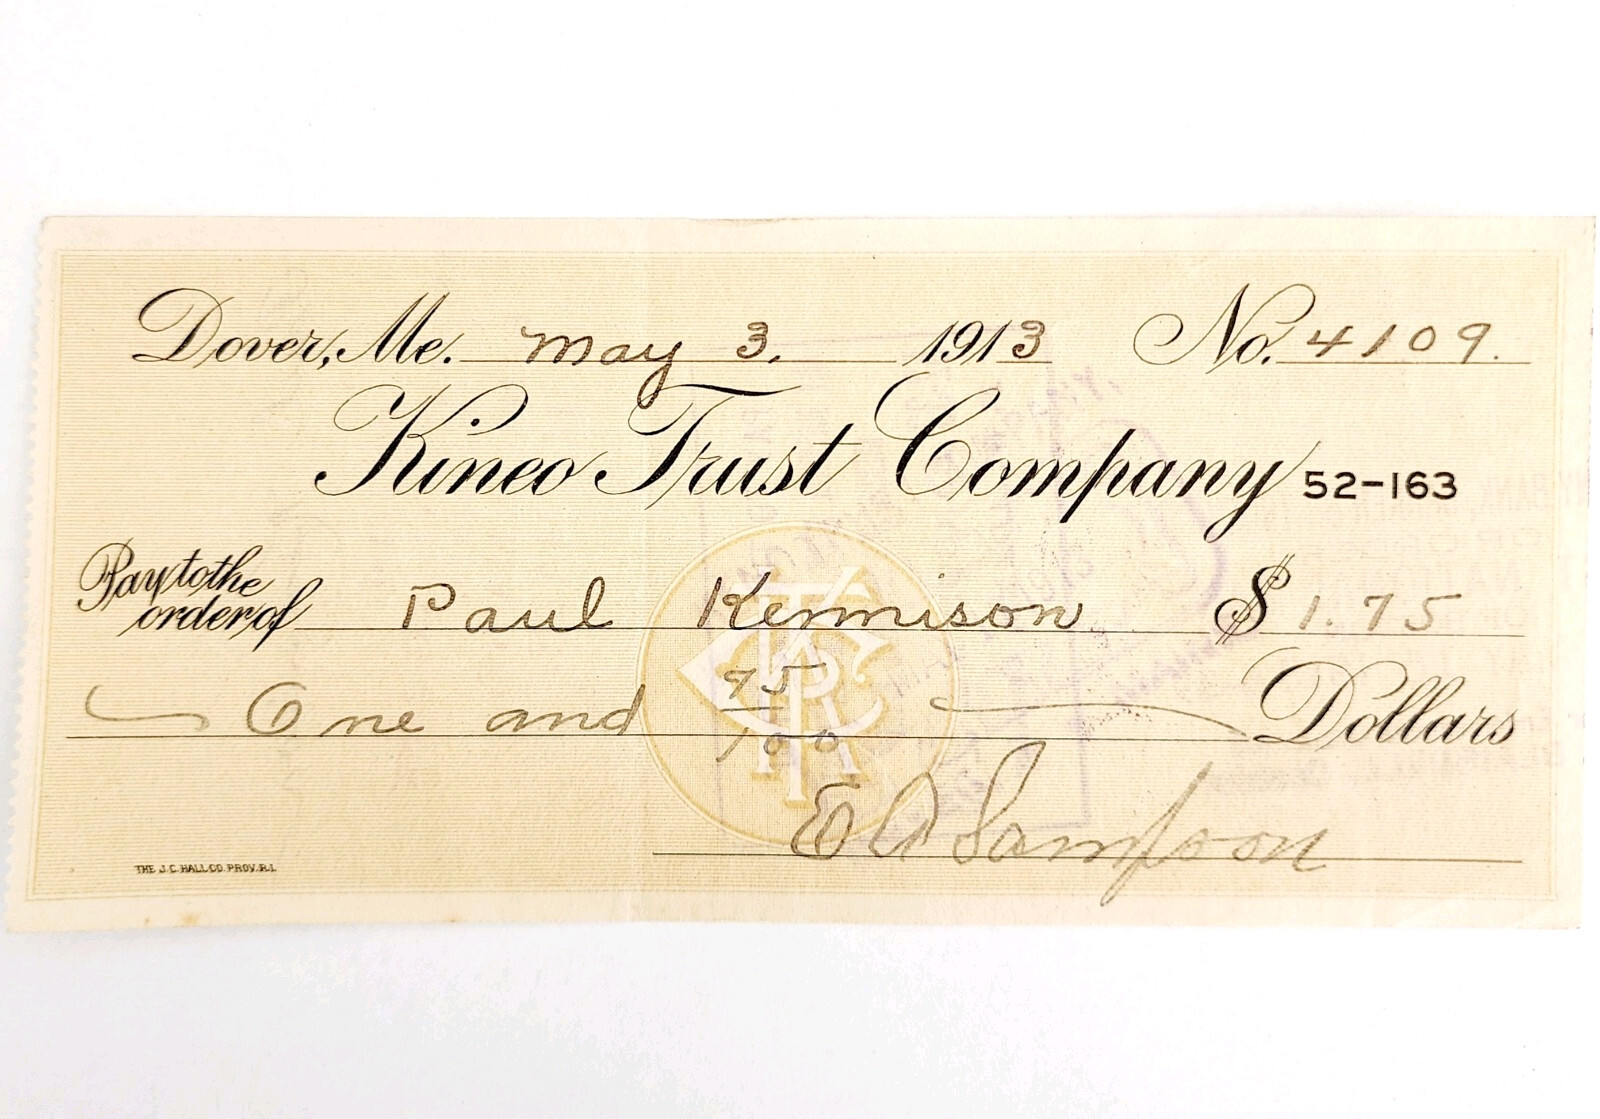 Dover, Me. May 3. 1913 No. 4109.
Kineo Trust Company 52-163
Pay to the order of Paul Kennison $ 1.75
One and 75/100 Dollars
E A Sampson
THE J.C. HALL CO. PROV. R.I.